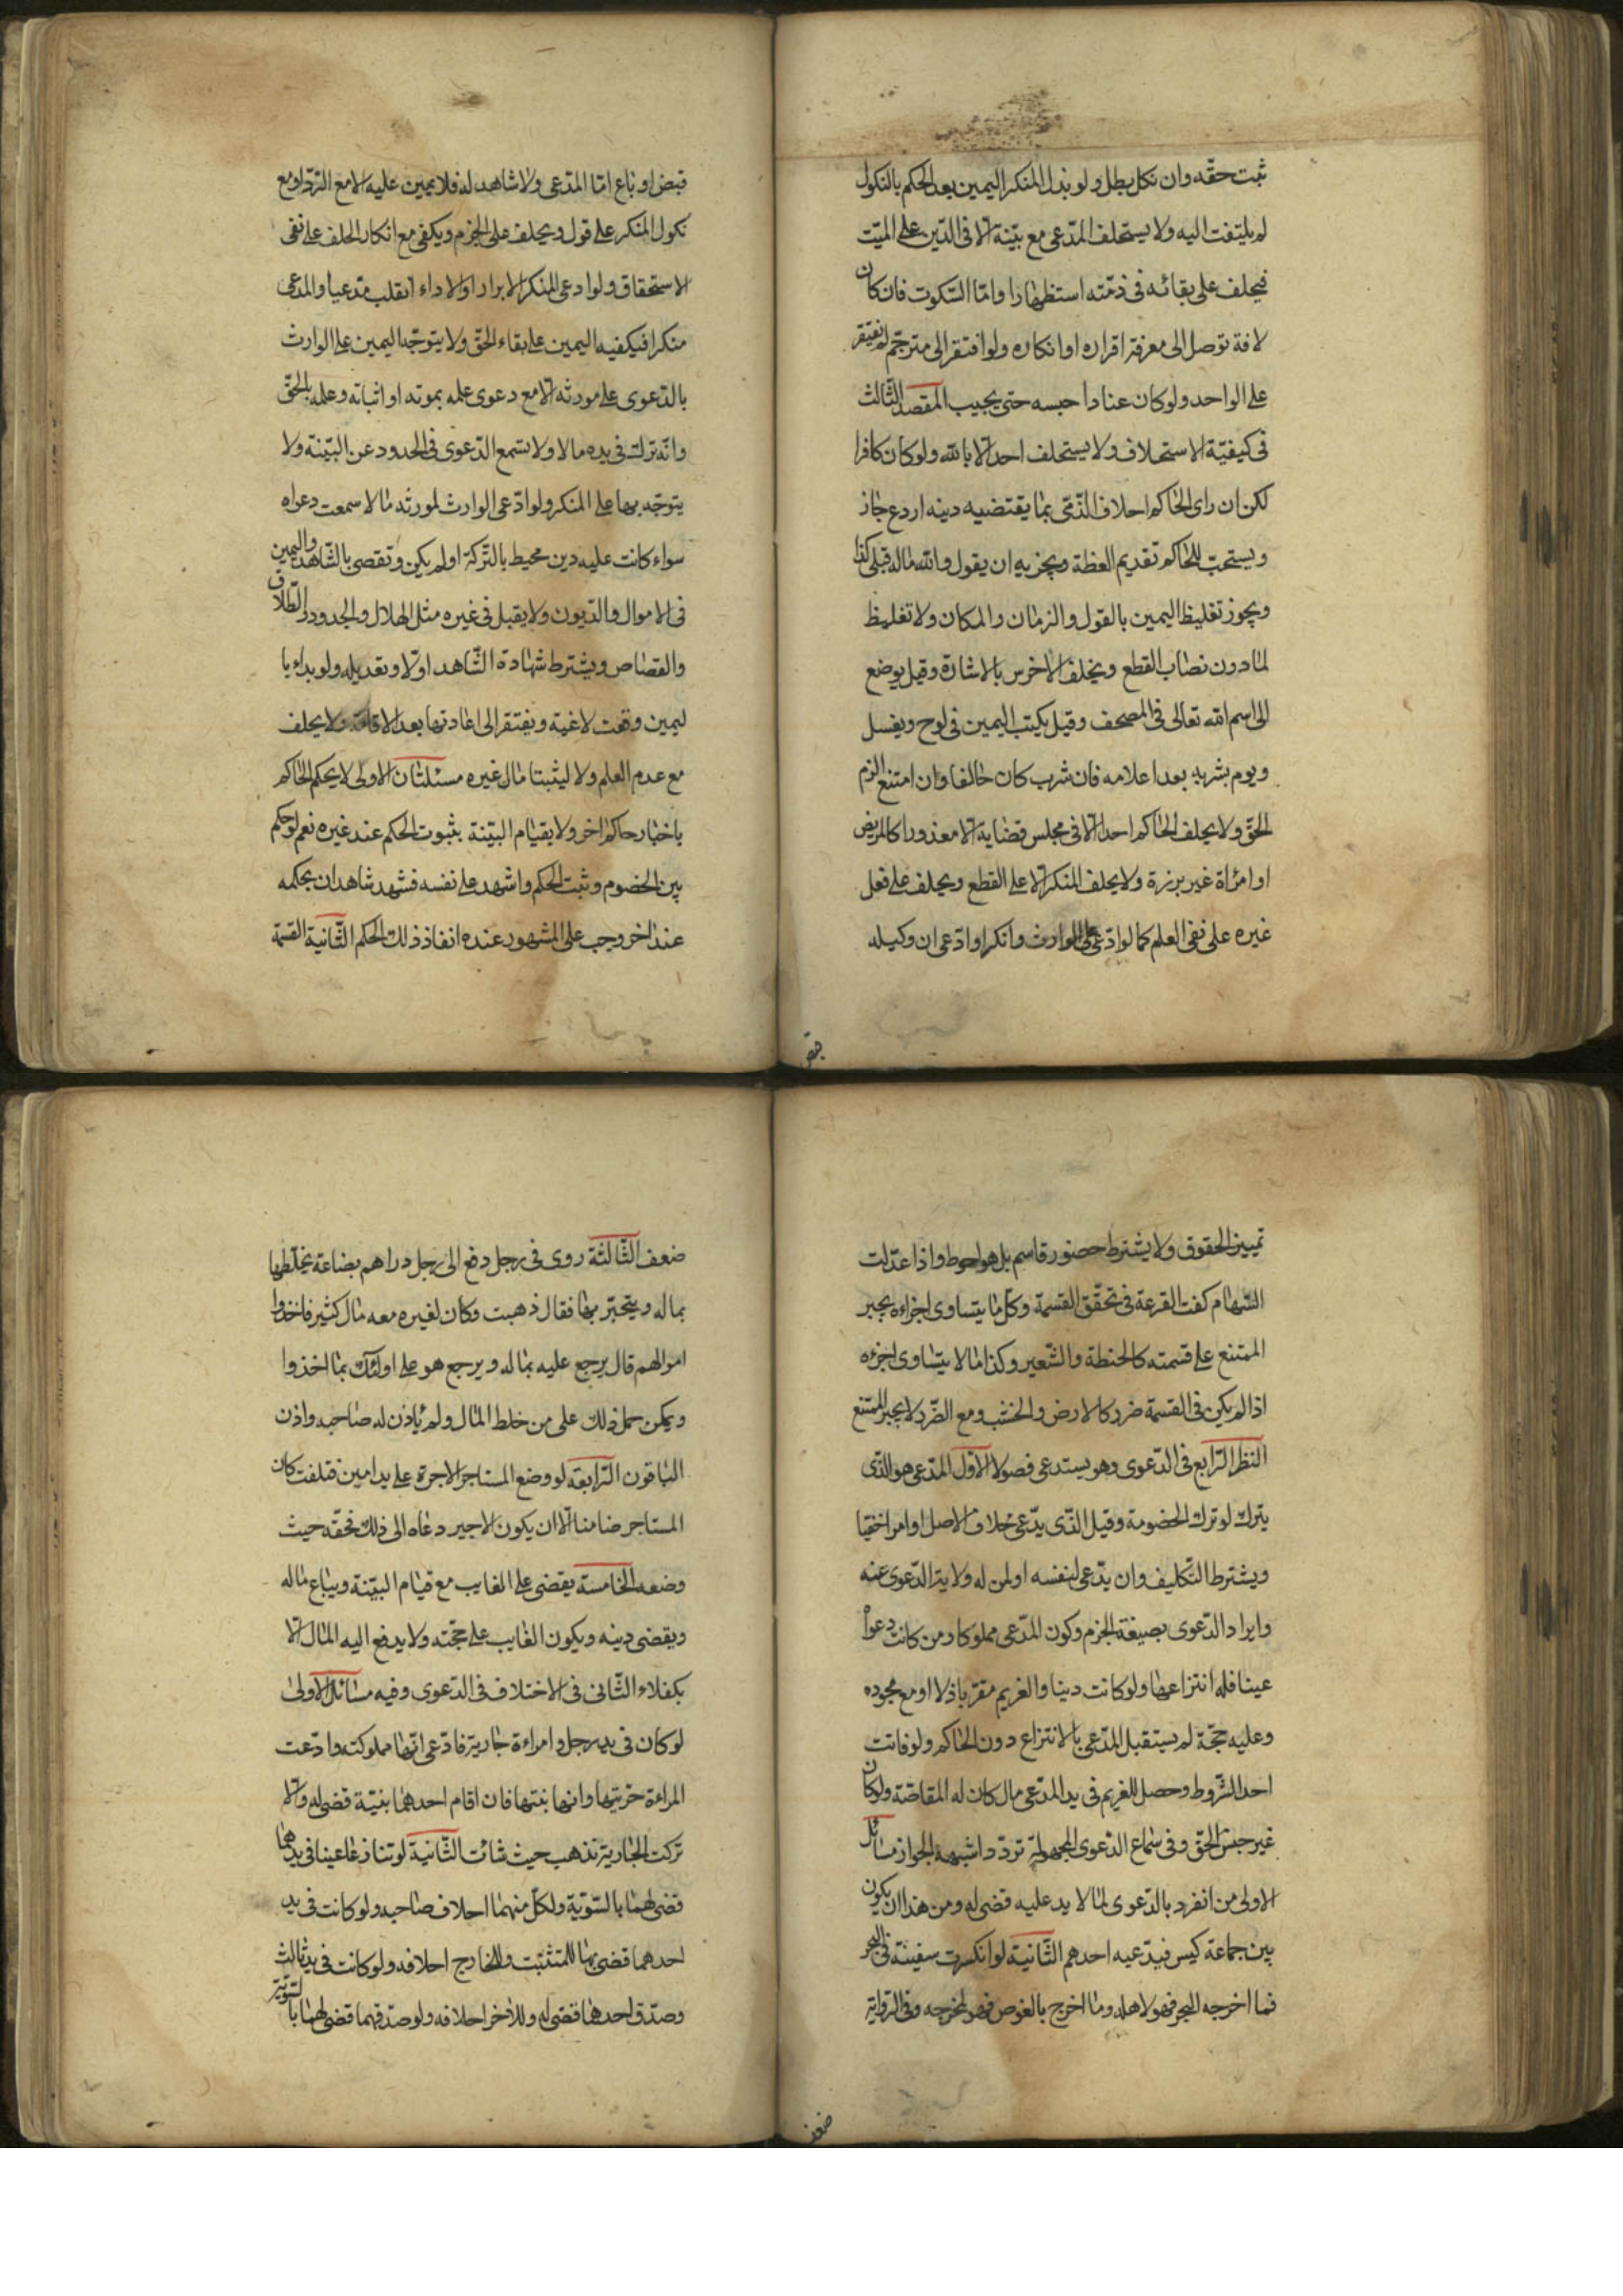 ثبت حقّه وان نكل بطل ولو بذل المنكر اليمين بعد الحكم بالنكول
لم يلتفت اليه ولا يستحلف المدّعى مع بيّنة الّا فى الدّين على الميّت
فيحلف على بقائه فى ذمّته استظهارا وامّا السّكوت فان كان
لافة توصل الى معرفة اقراره او انكاره ولو افتقر الى مترجم لم يفتقر
على الواحد ولو كان عنادا حبسه حتى يجيب المقصد الثّالث
فى كيفيّة الاستحلاف ولا يستحلف احد الّا بالله ولو كان كافرا
لكن ان راى الحاكم احلاف الذّمّى بما يقتضيه دينه اردع جاز
ويستحبّ للحاكم تقديم العظة ويجزيه ان يقول والله ماله قبلى كذا
ويجوز تغليظ اليمين بالقول والزمان والمكان ولا تغليظ
لما دون نصاب القطع ويحلف الاخرس بالاشارة وقيل يوضع
الى اسم الله تعالى فى المصحف وقيل يكتب اليمين فى لوح ويغسل
ويوم بشربه بعد اعلامه فان شرب كان حالفا وان امتنع الزم
الحقّ ولا يحلف الحاكم احدا الّا فى مجلس قضاية الّا معذورا كالمريض
او امراة غير برزة ولا يحلف المنكر الّا على القطع ويحلف على فعل
غيره على نفى العلم كما لو ادّعى على الوارث وانكر او ادّعى ان وكيله
قبض
قبض او باع امّا المدّعى ولا شاهد له فلا يمين عليه الا مع الرّد او مع
نكول المنكر على قول ويحلف على الجزم ويكفى مع انكار الحلف على نفى
الاستحقاق ولو ادعى المنكر الابراء او الاداء انقلب مدعيا والمدعى
منكرا فيكفيه اليمين على بقاء الحقّ ولا يتوجّه اليمين على الوارث
بالدّعوى على مورثه الّا مع دعوى علمه بموته او اثباته وعلمه بالحقّ
وانّه ترك فى يده مالا ولا يسمع الدّعوى فى الحدود عن البيّنة ولا
يتوجّه بها على المنكر ولو ادّعى الوارث لمورثه مالا سمعت دعواه
سواء كانت عليه دين محيط بالتّركة او لم يكن وتقضى بالشّاهد واليمين
فى الاموال والدّيون ولا يقبل فى غيره مثل الهلال والحدود والطّلاق
والقصاص ويشترط شهادة الشّاهد اوّلا وتعديله ولو بداء با
ليمين وقعت لاغية ويفتقر الى اعادتها بعد الاقامة ولا يحلف
مع عدم العلم ولا ليثبتا مال غيره مسئلتان الاولى لا يحكم الحاكم
باخبار حاكم اخر ولا بقيام البيّنة بثبوت الحكم عند غيره نعم لو حكم
بين الخصوم وثبت الحكم واشهد على نفسه فشهد شاهدان بحكمه
عند اخر وجب على المشهور عنده انفاذ ذلك الحكم الثّانية القسمة
تمييز الحقوق ولا يشترط حضور قاسم بل هو احوط واذا عدّلت
السّهام كفت القرعة فى تحقّق القسمة وكلّ ما يتساوى اجزاءه يجبر
الممتنع على قسمته كالحنطة والشّعير وكذا ما لا يتساوى اجزءه
اذا لم يكن فى القسمة ضرر كالارض والخشب ومع الضّرر لا يجبر الممتنع
النظر الرّابع فى الدّعوى وهو يستدعى فصولا الاوّل المدّعى هو الذّى
يترك لو ترك الخصومة وقيل الذّى يدّعى خلاف الاصل او امر اخفيا
ويشترط التّكليف وان يدّعى لنفسه او لمن له ولاية الدّعوى عنه
وايراد الدّعوى بصيغة الجزم وكون المدّعى مملوكا ومن كانت دعواه
عينا فله انتزاعها ولو كانت دينا والغريم مقرّ باذلا او مع جحوده
وعليه حجّة لم يستقبل المدّعى بالانتزاع دون الحاكم ولو فاتت
احد الشّروط وحصل للغريم فى يد المدّعى مال كان له المقاصّة ولو كان
غير جنس الحقّ وفى سماع الدّعوى المجهولة تردّد اشبهه الجواز مسائل
الاولى من انفرد بالدّعوى لما لا يد عليه قضى له ومن هذا ان يكون
بين جماعة كيس فيدّعيه احدهم الثّانية لو انكسرت سفينة فى البحر
فما اخرجه البحر فهو لاهله وما اخرج بالغوص فهو لمخرجه وفى الرّواية
ضعف
ضعف الثّالثة روى فى رجل دفع الى رجل دراهم بضاعة يخلّطها
بماله ويتجّر بها فقال ذهبت وكان لغيره معه مال كثير فاخذوا
اموالهم قال يرجع عليه بماله ويرجع هو على اولئك بما اخذوا
ويمكن حمل ذلك على من خلط المال ولم ياذن له صاحبه واذن
الباقون الرّابعة لو وضع المستاجر الاجرة على يد امين فتلفت كان
المستاجر ضامنا الّا ان يكون الاجير دعاه الى ذلك فحقّه حيث
وضعه الخامسة يقضى على الغايب مع قيام البيّنة ويباع ماله
ويقضى دينه ويكون الغايب على حجّته ولا يدفع اليه المال الّا
بكفلاء الثّانى فى الاختلاف فى الدّعوى وفيه مسائل الاولى
لو كان فى يد رجل وامراءة جارية فادّعى انّها مملوكته وادّعت
المراءة حرّيتها وانها بنتها فان اقام احدهما بنيّة قضى له والّا
تركت الجارية تذهب حيث شائت الثّانية لو تنازعا عينا فى يدهما
قضى لهما بالسّويّة ولكلّ منهما احلاف صاحبه ولو كانت فى يد
احدهما قضى بها للمتثبّت وللخارج احلافه ولو كانت فى يد ثالث
وصدّق احدهما قضى له وللاخر احلافه ولو صدّقهما قضى لهما بالسّويّة